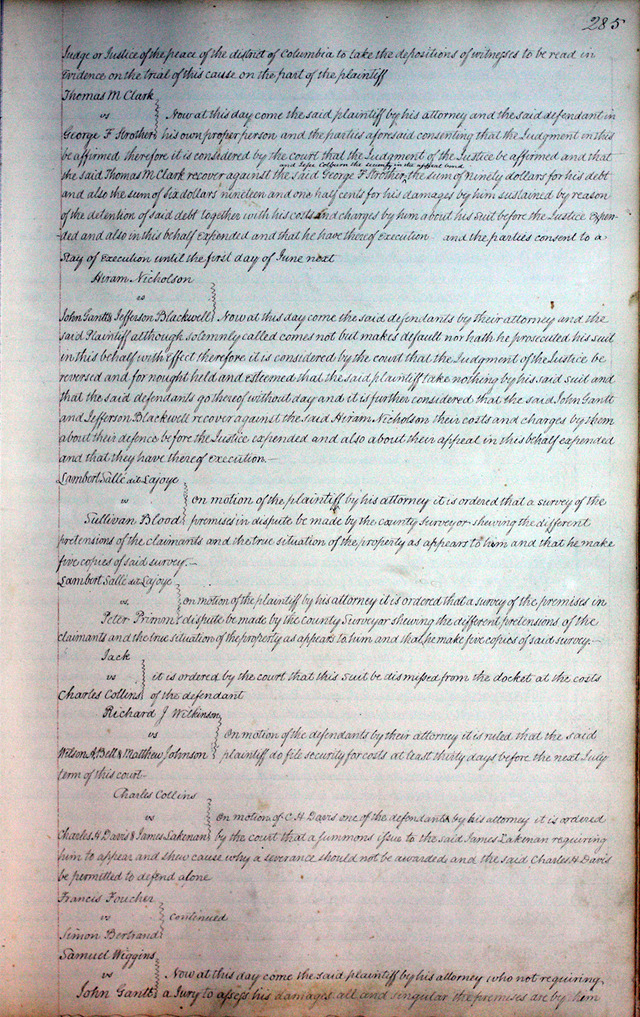 285
Judge or Justice of the peace of the district of Columbia to take the depositions of witnesses to be read in
evidence on the trial of this cause on the part of the plaintiff
Thomas M Clark
vs Now at this day come the said plaintiff by his attorney and the said defendant in
George F Strother his own proper person and the parties aforesaid consenting that the Judgment in this
be affirmed therefore it is considered by the court that the Judgment of the Justice be affirmed and that
and
the said Thomas M Clark recover against the said George F Strother the sum of ninety dollars for his debt
and also the sum of six dollars nineteen and one half cents for his damages by him sustained by reason
of the detention of said debt together with his costs and charges by him about his suit before the Justice expen-
ded and also in this behalf expended and that he have thereof execution and the parties consent to a
stay of execution until the first day of June next
Hiram Nicholson
vs
John Gantt & Jefferson Blackwell Now at this day come the said defendants by their attorney and the
said Plaintiff although solemnly called comes not but makes default nor hath he prosecuted his suit
in this behalf with effect therefore it is considered by the court that the Judgment of the Justice be
reversed and for nought held and esteemed that the said plaintiff take nothing by his said suit and
that the said defendants go thereof without day and it is further considered that the said John Gantt
and Jefferson Blackwell recover against the said Hiram Nicholson their costs and charges by them
about their defence before the Justice expended and also about their appeal in this behalf expended
and that they have thereof execution.—
Lambert Sallé dit Lajoye
vs on motion of the plaintiff by his attorney it is ordered that a survey of the
Sullivan Blood premises in dispute be made by the county surveyor shewing the different
pretensions of the claimants and the true situation of the property as appears to him and that he make
five copies of said survey.—
Lambert Sallé dit Lajoye
vs on motion of the plaintiff by his attorney it is ordered that a survey of the premises in
Peter Primm dispute be made by the County Surveyor shewing the different pretensions of the
claimants and the true situation of the property as appears to him and that he make five copies of said survey.—
Jack
vs it is ordered by the court that this suit be dismissed from the docket at the costs
Charles Collins of the defendant
Richard J Wilkinson
vs on motion of the defendants by their attorney it is ruled that the said
Wilson A. Bell & Matthew Johnson plaintiff do file security for costs at least thirty days before the next July
term of this court.
Charles Collins
vs on motion of C. H. Davis one of the defendants by his attorney it is ordered
Charles H Davis & James Lakenan by the court that a summons issue to the said James Lakenan requiring
him to appear and shew cause why a severance should not be awarded and the said Charles H Davis
be permitted to defend alone
Francis Foucher
vs continued
Simon Bertrand
Samuel Wiggins
vs Now at this day come the said plaintiff by his attorney who not requiring
John Gantt a Jury to assess his damages all and singular the premises are by them